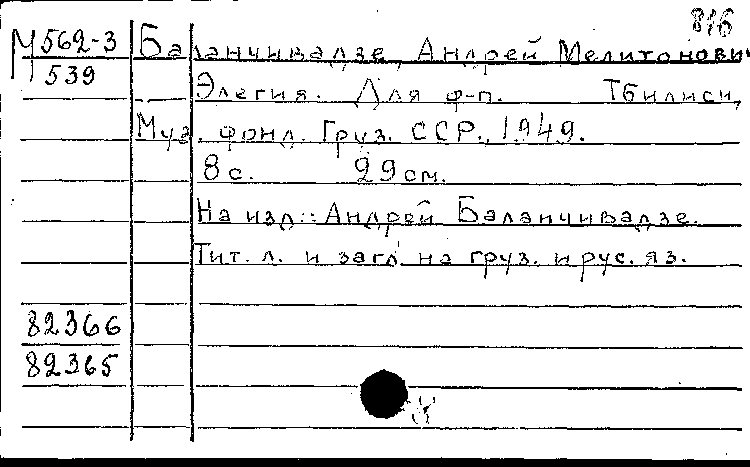 816
М 562-3 Баланчивадзе, Андрей Мелитонович
539
Элегия. Для ф-п. Тбилиси,
Муз. фонд. Груз. ССР., 1949.
8 с. 29 см.
На изл.: Андрей Баланчивадзе.
Тит. л. и загл. на груз. и рус. яз.
82366
82365